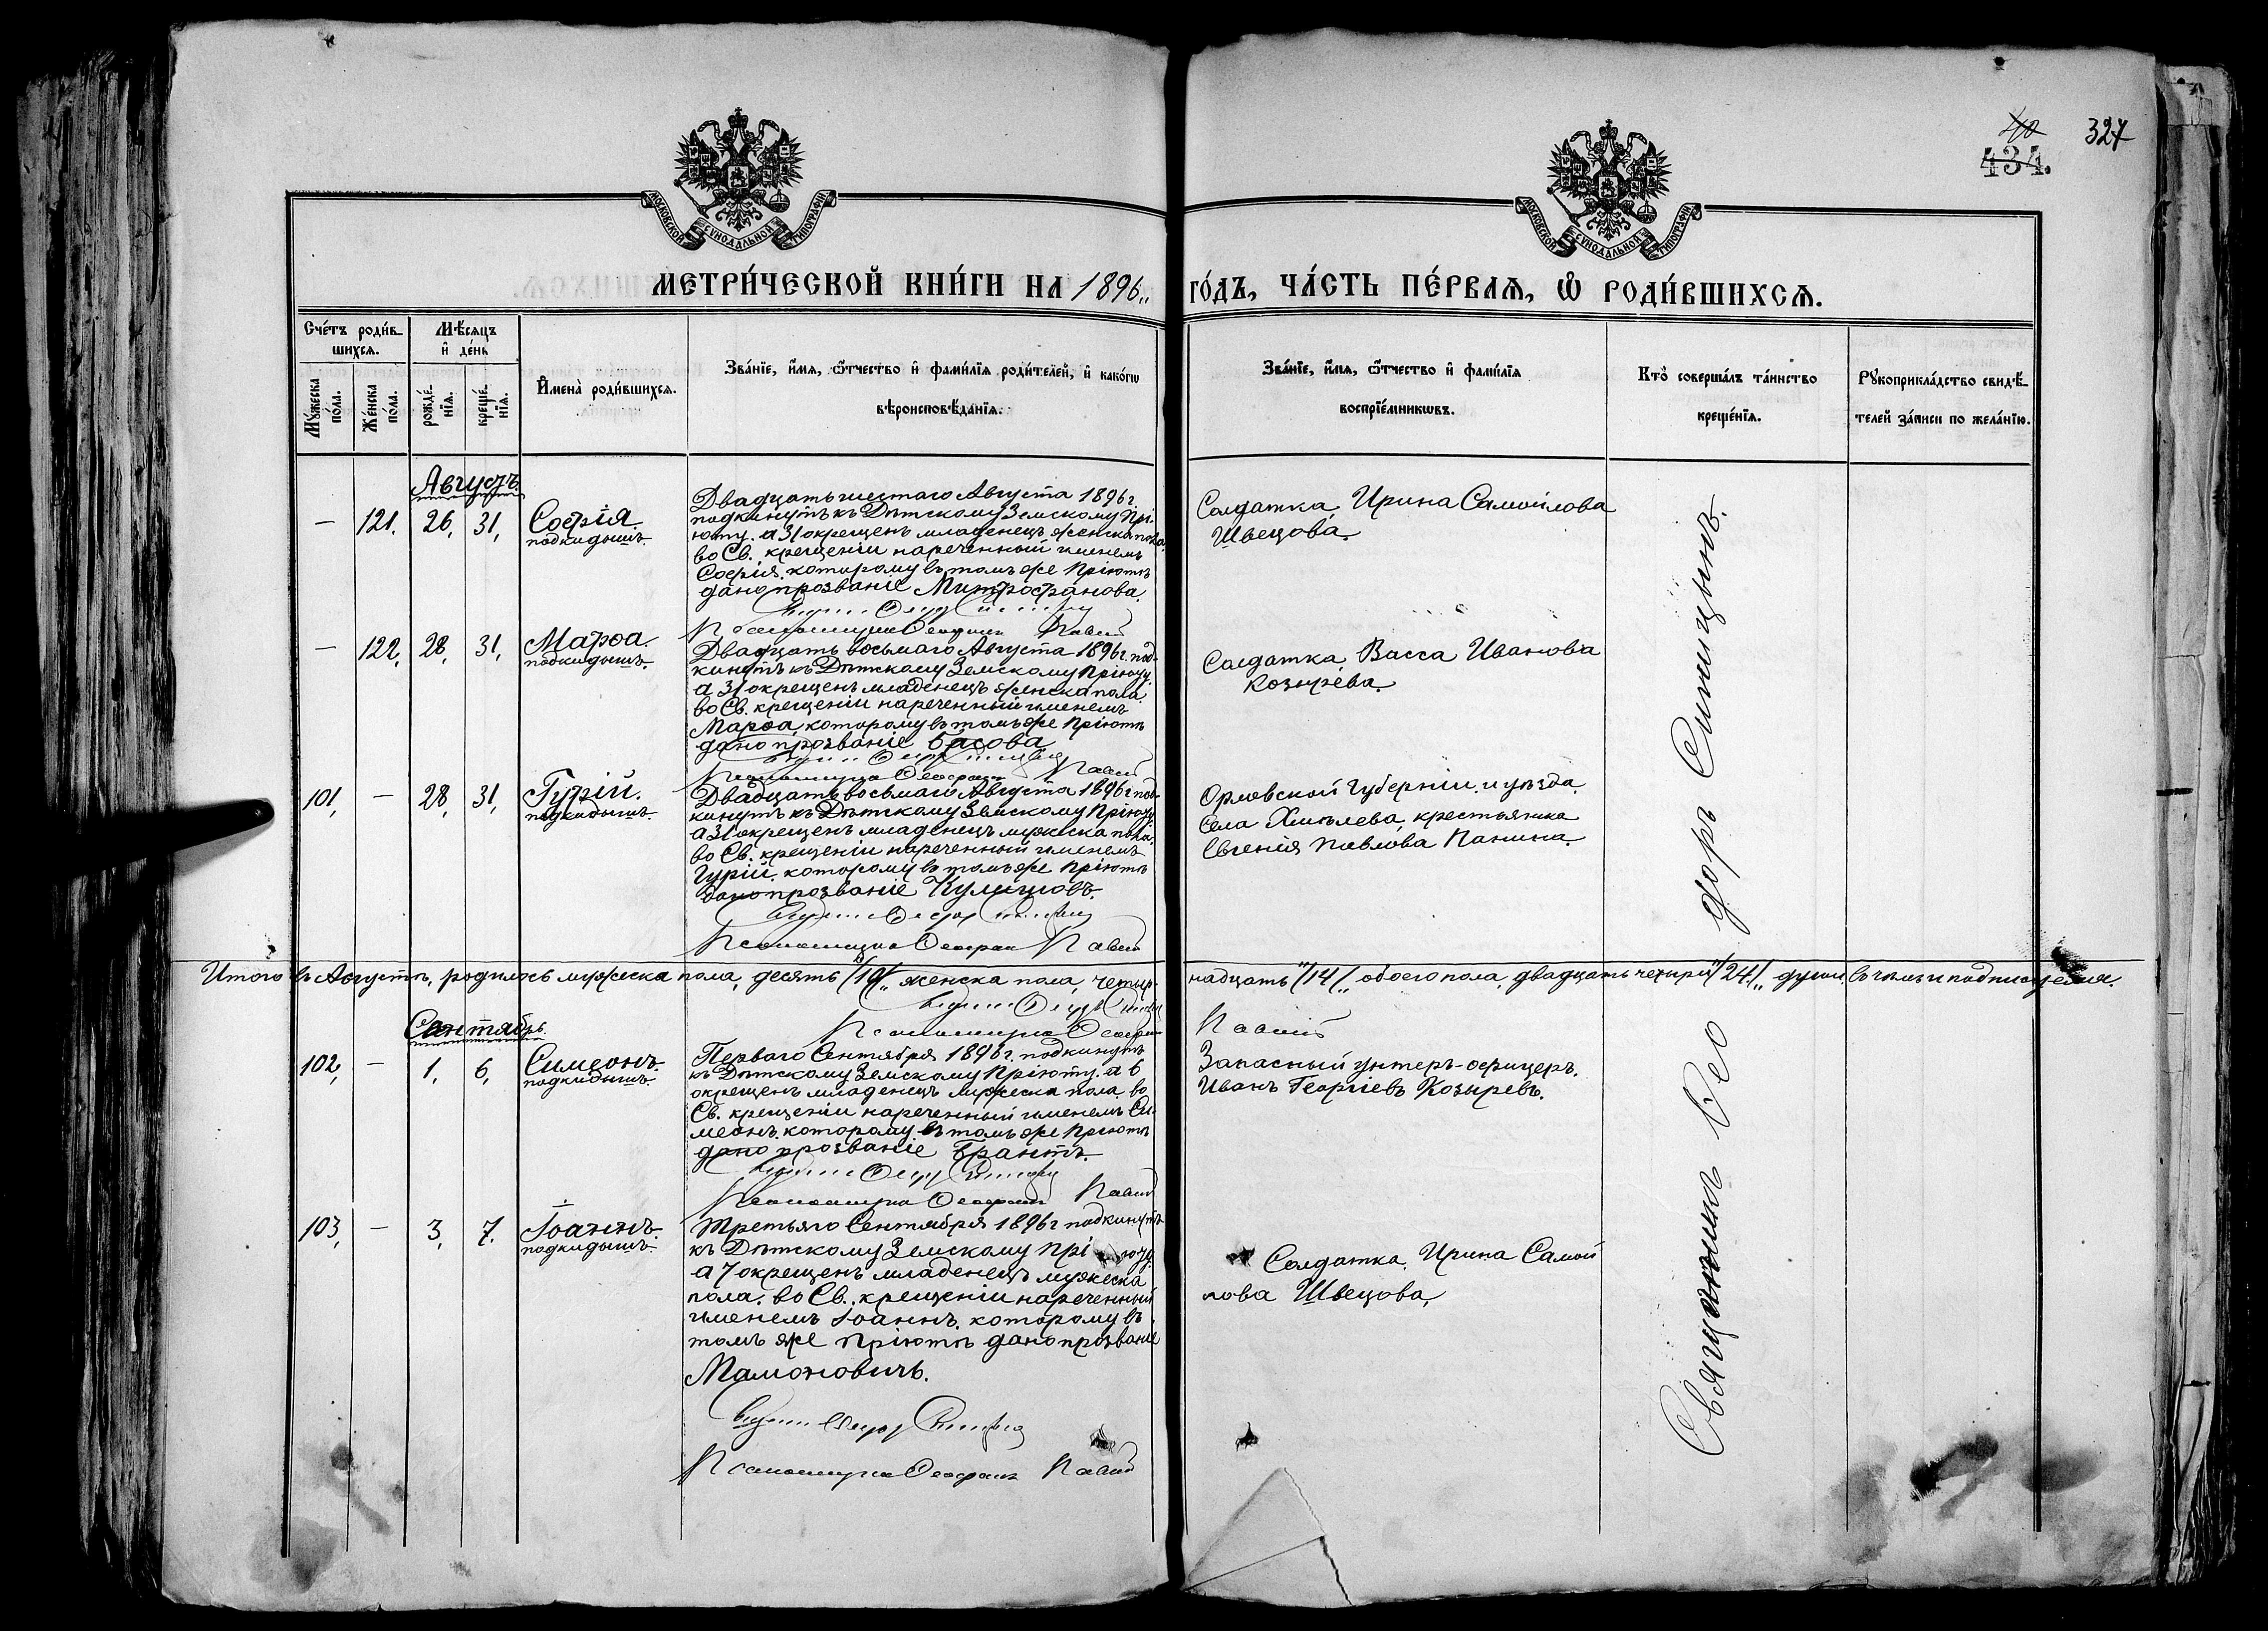 40 327
434.
МОСКОВСКОЙ СѴНОДАЛЬНОЙ ТИПОГРАФІИ
МОСКОВСКОЙ СѴНОДАЛЬНОЙ ТИПОГРАФІИ
МЕТРИ́ЧЕСКОЙ КНИ́ГИ НА 1896„ ГО́ДЪ, ЧА́СТЬ ПЕ́РВАѦ, Ѡ҆ РОДИ́ВШИХСѦ.
Сче́тъ роди́в-
шихсѧ.
Мꙋ́жеска по́ла.
Же́нска по́ла.
Мѣ́сѧцъ
и҆ де́нь
рожде́-
нїѧ.
креще́-
нїѧ.
И҆мена̀ роди́вшихсѧ.
Зва́нїе, и҆́мѧ, ѻ҆́тчество и҆ фами́лїѧ роди́телей, и҆ како́гѡ
вѣроисповѣ́данїѧ.
Зва́нїе, и҆́мѧ, ѻ҆́тчество и҆ фами́лїѧ
воспрїе́мникѡвъ.
Кто̀ соверша́лъ та́инство
креще́нїѧ.
Рꙋкоприкла́дство свидѣ́-
телей за́писи по жела́нїю.
Августъ.
— 121. 26, 31, Софія.
подкидышъ.
Двадцать шестаго Августа 1896 г.
подкинутъ къ Дѣтскому Земскому Прі-
юту. а 31 окрещенъ младенецъ женска пола.
во Св. крещеніи нареченный именемъ
Софія. которому въ томъ же Пріютѣ
дано прозваніе Митрофанова.
Псаломщикъ Павл
Солдатка, Ирина Самойлова
Швецова.
— 122, 28, 31, Марѳа.
подкидышъ.
Двадцать восьмаго Августа 1896 г. под-
кинутъ къ Дѣтскому Земскому Пріюту.
а 31 окрещенъ младенецъ женска пола.
во Св. крещеніи нареченный именемъ
Марѳа, которому въ томъ же Пріютѣ
дано прозваніе Басова
Псаломщикъ Павл
Солдатка, Васса Иванова
Козырева.
101, — 28, 31, Гурій.
подкидышъ.
Двадцать восьмаго Августа 1896 г под-
кинутъ къ Дѣтскому Земскому Пріюту
а 31 окрещенъ младенецъ мужеска пола.
во Св. крещеніи нареченный именемъ
Гурій. которому въ томъ же Пріютѣ
дано прозваніе Кулишовъ.
Псаломщикъ Павл
Орловской Губерніи. и уѣзда.
села Хмѣлева, крестьянка
Евгенія Павлова Панина.
Итого въ Августѣ, родилось мужеска пола, десять „/10/„ женска пола, четыр-
надцать „/14/„ обоего пола, двадцать четыри „/24/„ души, въ чемъ и подписуемся.
Псаломщикъ
Сентябрь.
102, — 1, 6, Симеонъ.
подкидышъ.
Перваго Сентября 1896 г. подкинутъ
къ Дѣтскому Земскому Пріюту. а 6
окрещенъ младенецъ мужеска пола. во
Св. крещеніи нареченный именемъ Си-
меонъ. которому въ томъ же Пріютѣ
дано прозваніе Брантъ.
Псаломщикъ Павл
Запасный унтеръ-офицеръ.
Иванъ Георгіевъ Козыревъ.
103, — 3, 7. Іоаннъ.
подкидышъ.
Третьяго Сентября 1896 г подкинутъ
къ Дѣтскому Земскому Пріюту.
а 7 окрещенъ младенецъ мужеска
пола. во Св. крещеніи нареченный
именемъ Іоаннъ. которому въ
томъ же Пріютѣ дано прозваніе
Мамоновичъ.
Псаломщикъ Павл
Солдатка, Ирина Самой
лова Швецова,
Священникъ Ѳеодоръ Синицынъ.